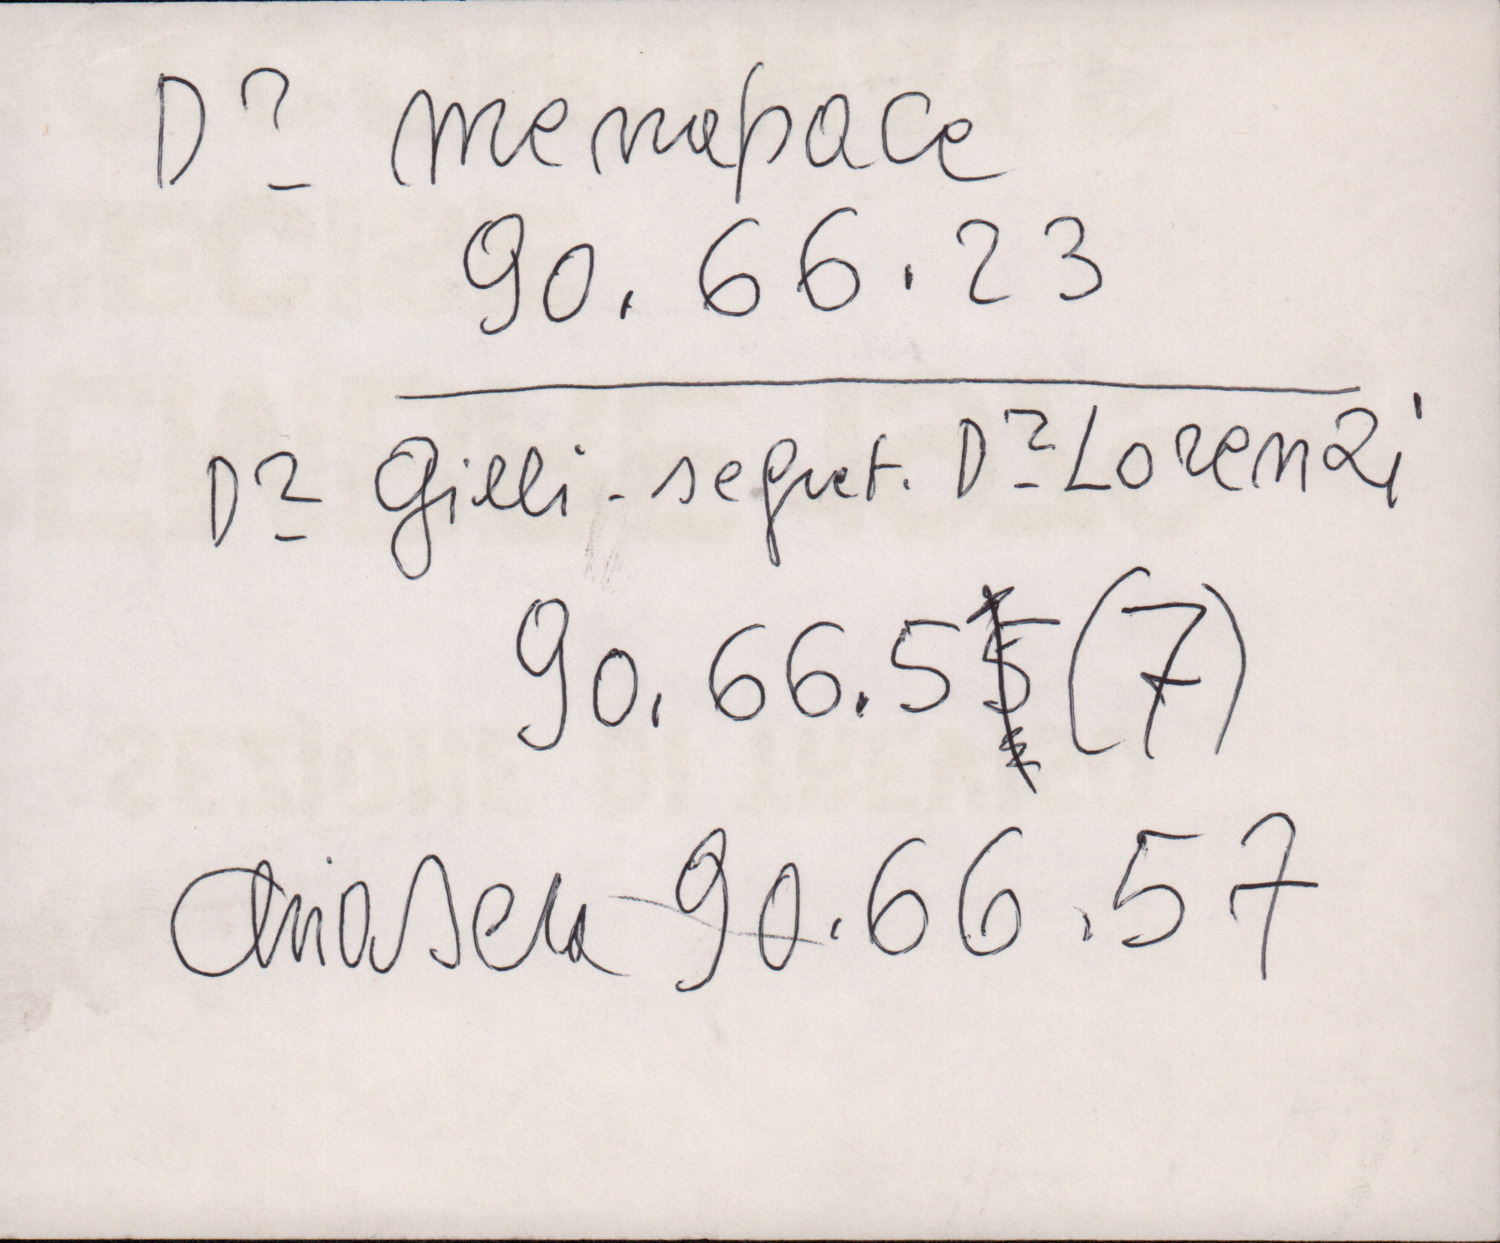 Dr Menapace
90.66.23
Dr Gilli - segret. Dr Lorenzi
90.66.55 (7)
90.66.57